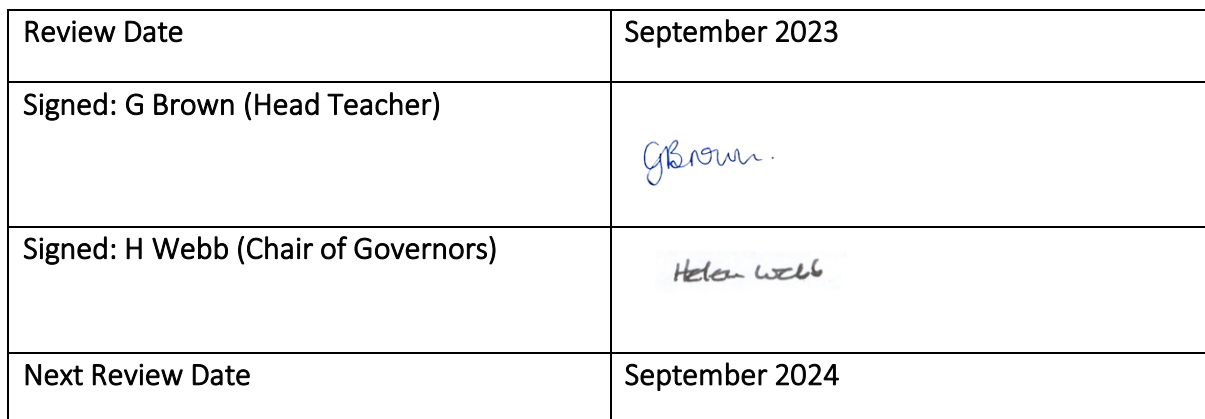 Review Date
September 2023
Signed: G Brown (Head Teacher)
GBrown.
Signed: H Webb (Chair of Governors)
Helen Webb
Next Review Date
September 2024